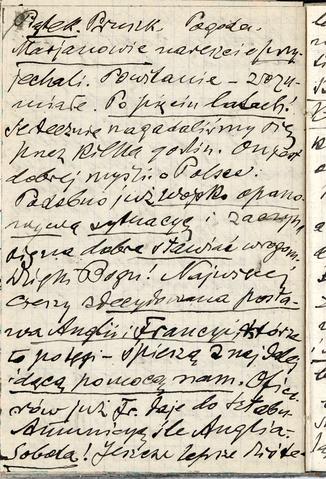 Piątek. Prusk. Pogoda.
Marjanowie nareszcie przy-
jechali. Powitanie – zrozu-
miałe. Po pięciu latach!
Serdecznie nagadaliśmy się
przez kilka godzin. On jest
dobrej myśli o Polsce.
Podobno już wojsko opano-
wywa sytuację i zaczyna
dobre stawiać wrogom.
Dzięki Bogu! Najwięcej
cieszy zdecydowana posta-
wa Anglii i Francyi, które
to potęgi – spieszą z najdalej
idącą pomocą nam. Ofice-
rów już Fr. daje do sztabu.
Amunicyą ile Anglia.
Sobota! Jeszcze lepsze